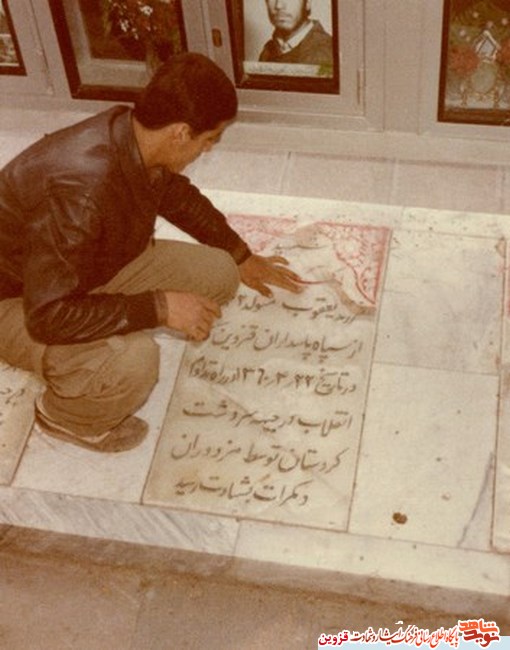 شهید
فرزند یعقوب متولد
از سپاه پاسداران قزوین
در تاریخ ۲۲ـ۳ـ۱۳۶۰ در راه تداوم
انقلاب در جبهه سردشت
کردستان توسط مزدوران
دمکرات بشهادت رسید
نوید شاهد
پایگاه اطلاع رسانی فرهنگ ایثار و شهادت قزوین